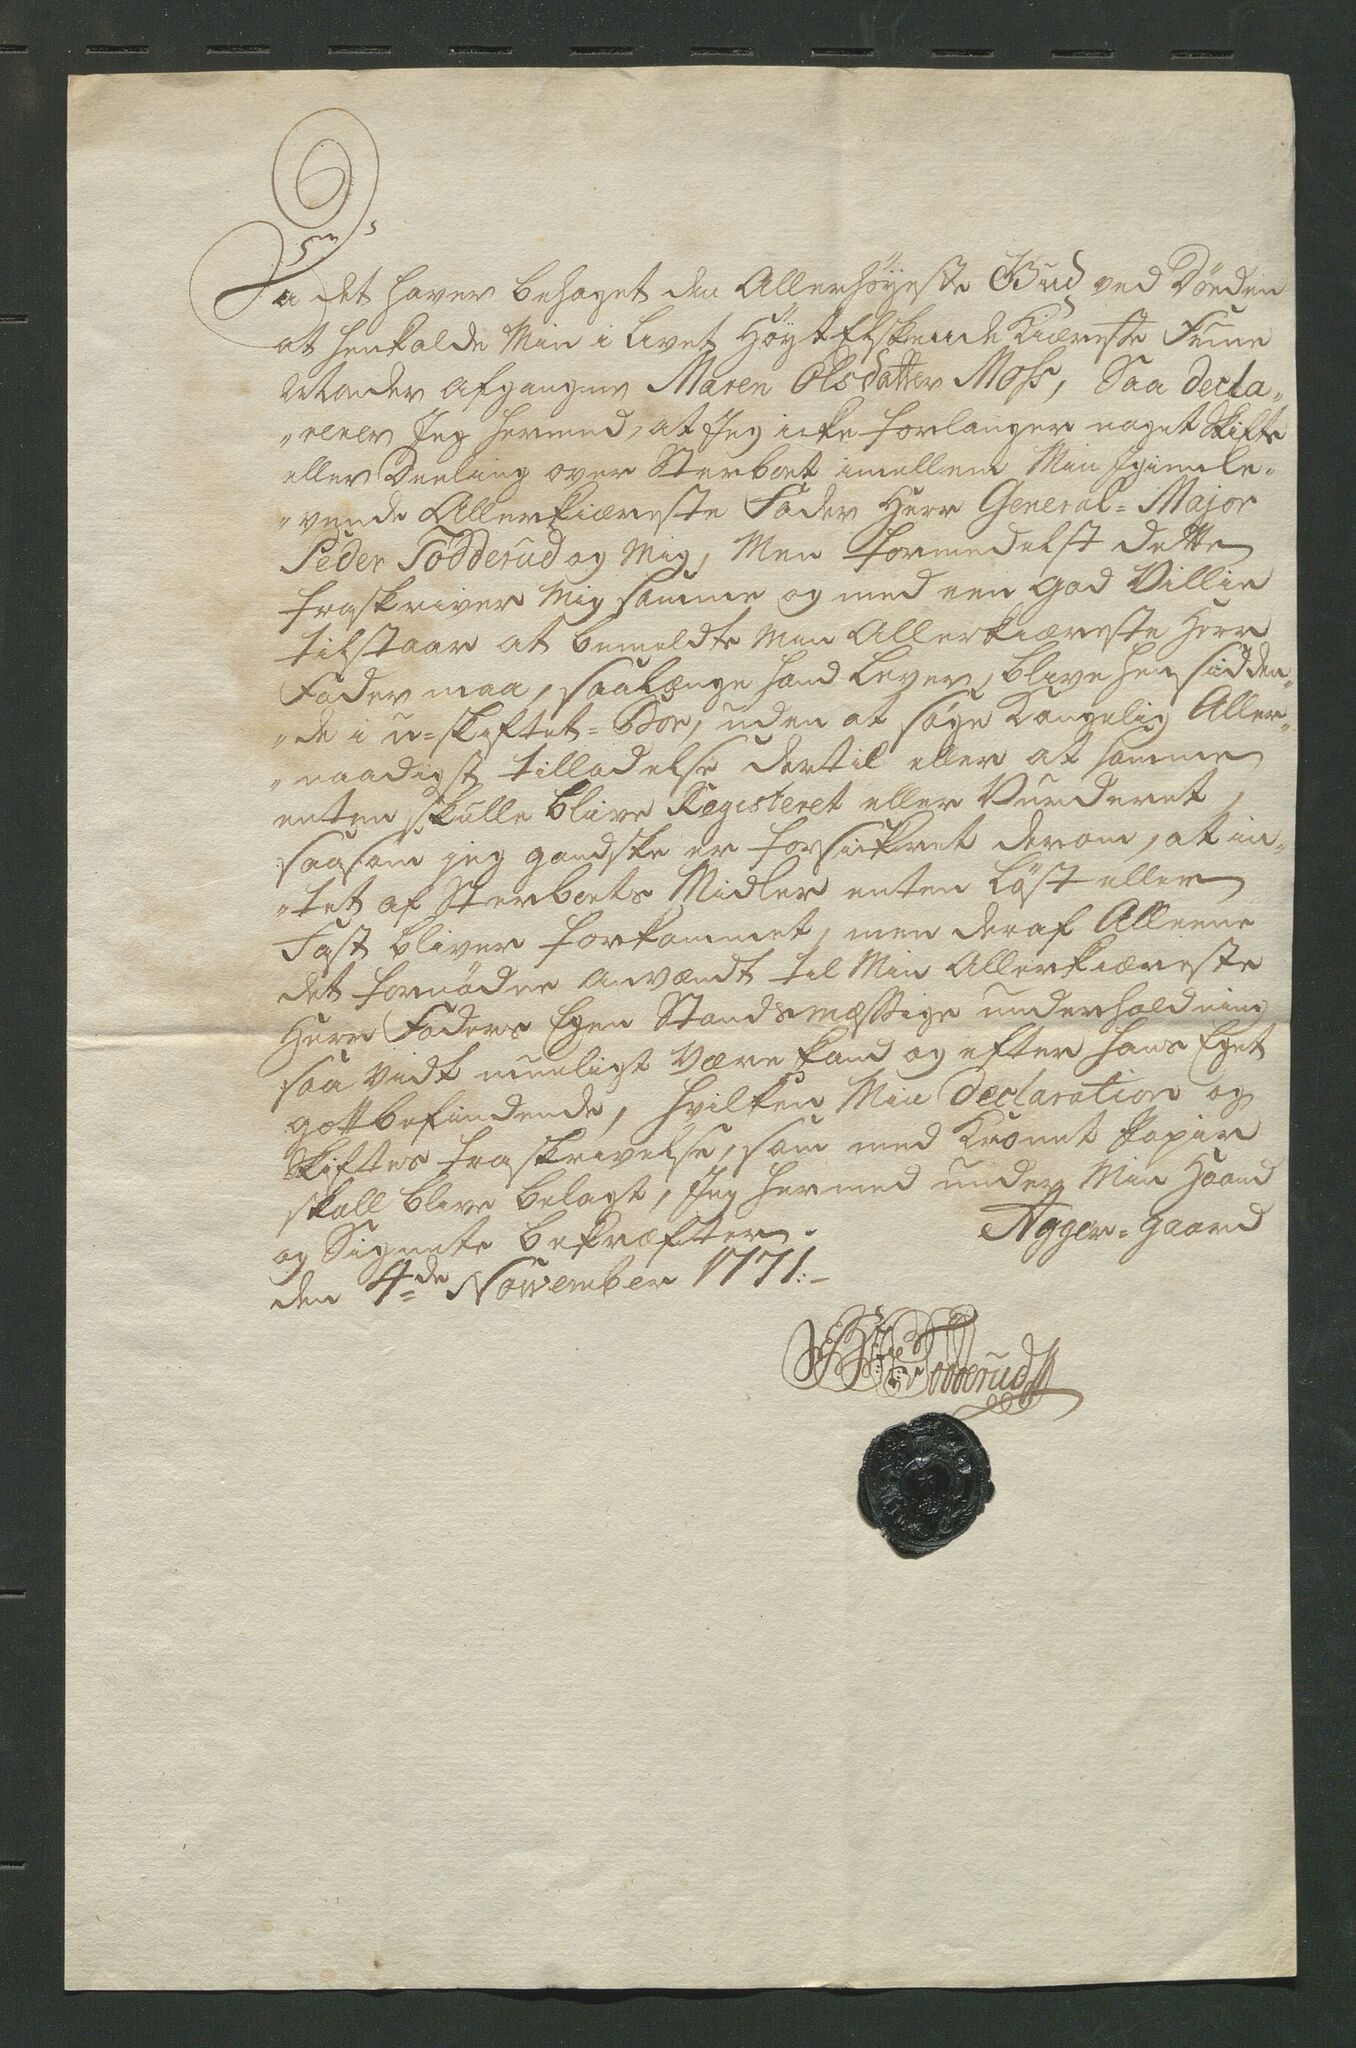 Da det haver behaget den Allerhöyeste Gud ved Döeden
at henkalde Min i Livet Höyt Elskende Kiæreste Frue
Moeder afgangne Maren Olsdatter Moss, Saa decla„
„rerer Jeg hermed, at Jeg icke forlanger noget Skifte
eller Deeling over Sterboet imellem Min igienle„
„vende Allerkiæreste Fader Herr General-Major
Peder Todderud og Mig, Men formedelst dette
fraskriver Mig samme og med een god Villie
tilstaar at bemeldte Min Allerkiæreste Herr
Fader maa, saalænge hand Lever, blive hen sidden„
„de i u-skiftet-Boe, uden at søge Kongelig Aller„
„naadigst tilladelse dertil eller at samme
enten skulle blive Registeret eller Vurderet,
saasom jeg gandske er forsickret derom, at in„
„tet af Sterboets Midler enten Løst eller
Fast bliver forkommet, men deraf Alleene
det fornödne anvændt til Min Allerkiæreste
Herr Faders Egen Standsmæssige underholdning
saa vidt mueligt være kand og efter hans Eget
gottbefindende, hvilken Min Declaration og
Skiftes fraskrivelse, som med Kronet Papiir
skall blive belagt, Jeg hermed under Min Haand
og Signete bekræfter. Agger-Gaard
den 4de November 1771.
Todderud